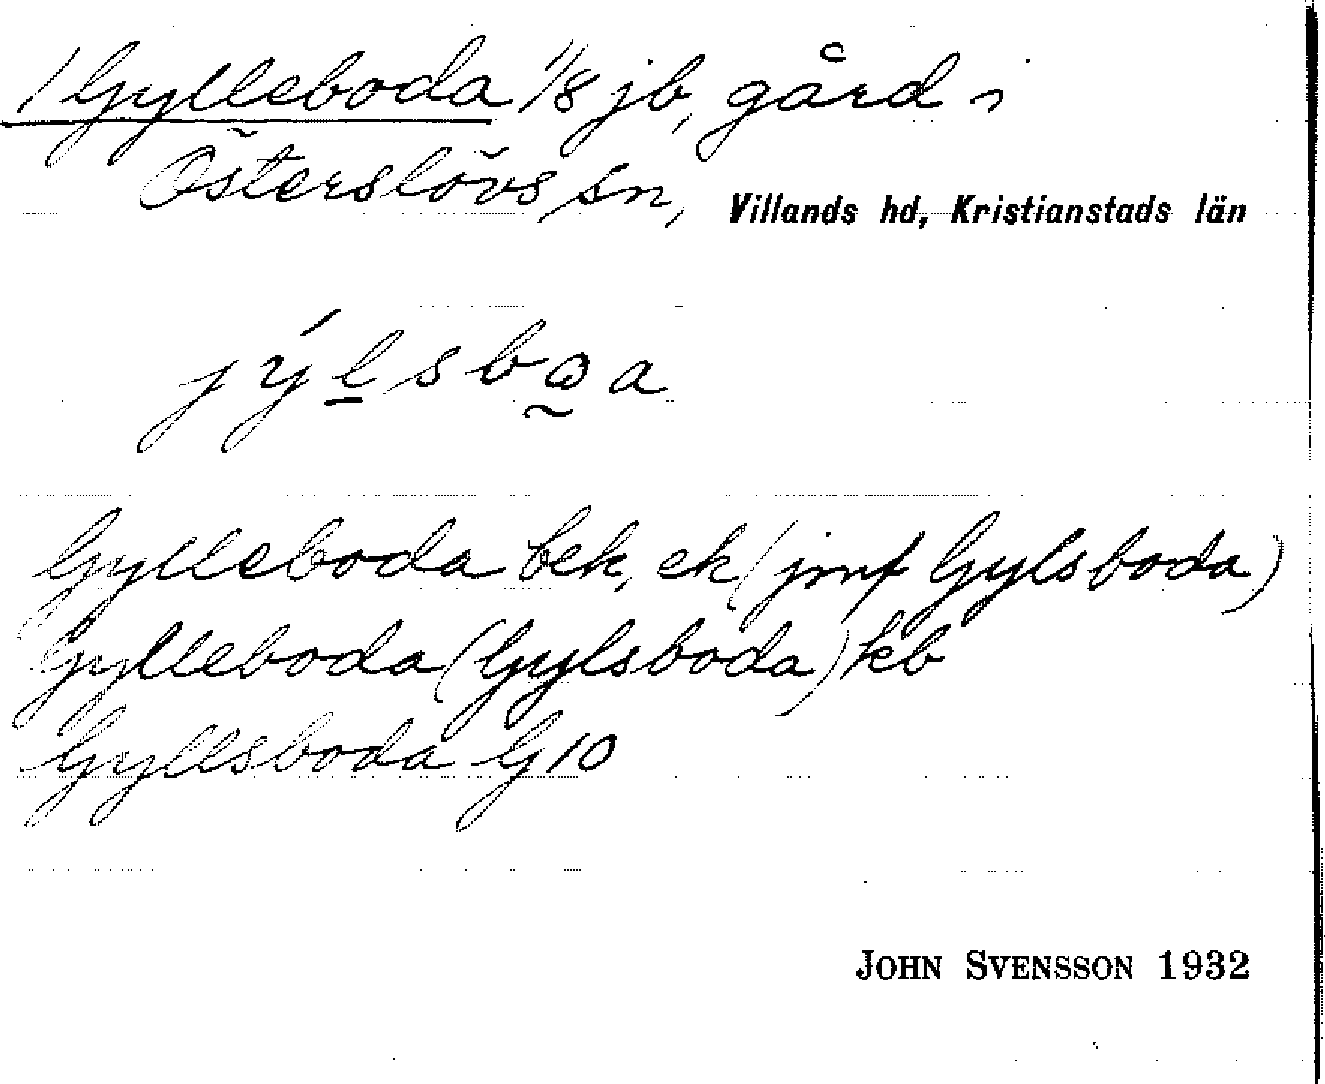 / Gylleboda 1/8 jb, gård i
Östersłövs sn, Villands hd, Kristianstads län
jýl̲sbω̰a
Gylleboda bek, ek (jmf Gylsboda)
Gylleboda (Gylsboda) kb
Gyllsboda G10
JOHN SVENSSON 1932